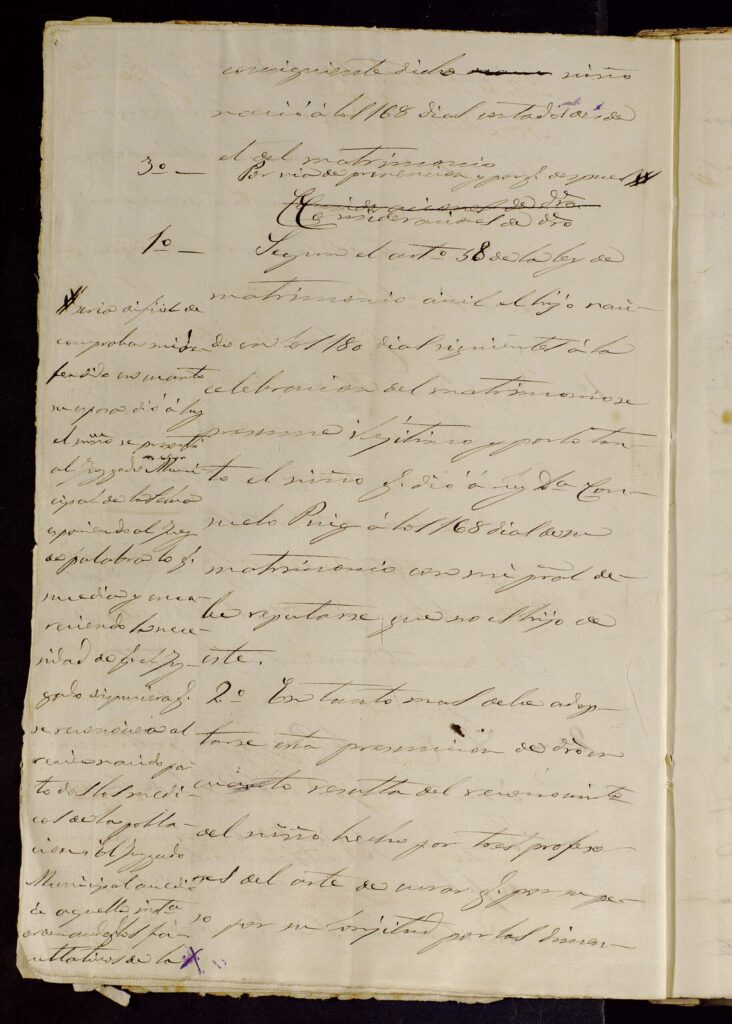 consiguiente dicho niño
nació á los 168 dias contados desde
el del matrimonio
3º — Por via de prevencion y por q. despues #
Consideraciones de dro
Consideraciones de dro
1º — Segun el artº 58 de la ley de
matrimonio civil el hijo naci-
do en los 180 dias siguientes á la
celebracion del matrimonio se
presume ilegitimo y por lo tan-
to el niño q. dió á luz Dª Con-
suelo Puig á los 168 dias de su
matrimonio con mi pral de-
be reputarse que no es hijo de
este.
2º En tanto mas debe adop-
tarse esta presuncion de dro en
cuanto resulta del reconocimto
del niño hecho por tres profeso-
res del arte de curar q. por su pe-
so por su longitud por las dimen-
# seria dificil de
comprobar mi de-
fendido en cuanto
su esposa dió á luz
el niño se presentó
al Juzgado Muni-
cipal de la
esponiendo al Juez
de palabra lo q.
sucedia y enca-
reciendo la nece-
sidad de q. el Juz-
gado dispusiera q.
se reconociera al
recien nacido por
todos los medi-
cos de la pobla-
cion. El Juzgado
Municipal accedió
á aquella insta
ordenando á los fa-
cultativos de la